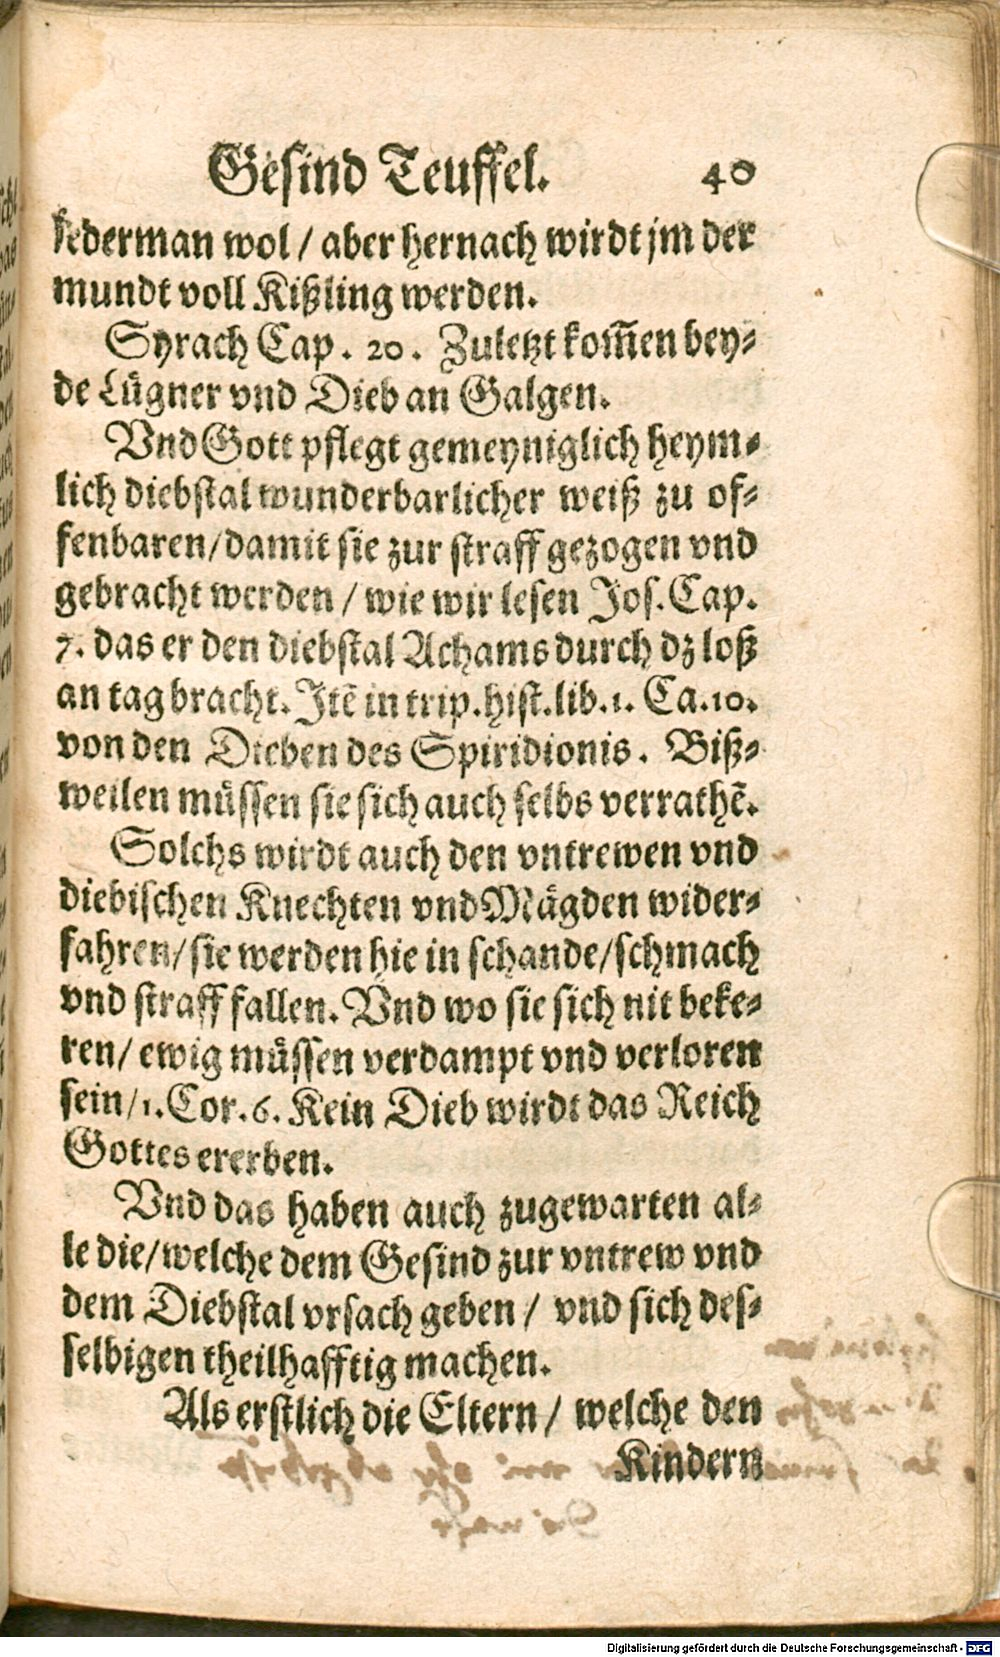 Gesind Teuffel. 40
jederman wol / aber hernach wirdt jm der
mundt voll Kißling werden.
Syrach Cap. 20. Zuletzt kom̃en bey⸗
de Lügner vnd Dieb an Galgen.
Vnd Gott pflegt gemeyniglich heym⸗
lich diebstal wunderbarlicher weiß zu of⸗
fenbaren/damit sie zur straff gezogen vnd
gebracht werden / wie wir lesen Jos. Cap.
7. das er den diebstal Achams durch dz loß
an tag bracht. Itẽ in trip.hist.lib.1. Ca.10.
von den Dieben des Spiridionis. Biß⸗
weilen müssen sie sich auch selbs verrathẽ.
Solchs wirdt auch den vntrewen vnd
diebischen Knechten vnd Mägden wider⸗
fahren/sie werden hie in schande/schmach
vnd straff fallen. Vnd wo sie sich nit beke⸗
ren/ ewig müssen verdampt vnd verloren
sein/1.Cor.6. Kein Dieb wirdt das Reich
Gottes ererben.
Vnd das haben auch zugewarten al⸗
le die/welche dem Gesind zur vntrew vnd
dem Diebstal vrsach geben / vnd sich des⸗
selbigen theilhafftig machen.
Als erstlich die Eltern / welche den
Kindern
Digitalisierung gefördert durch die Deutsche Forschungsgemeinschaft - DFG